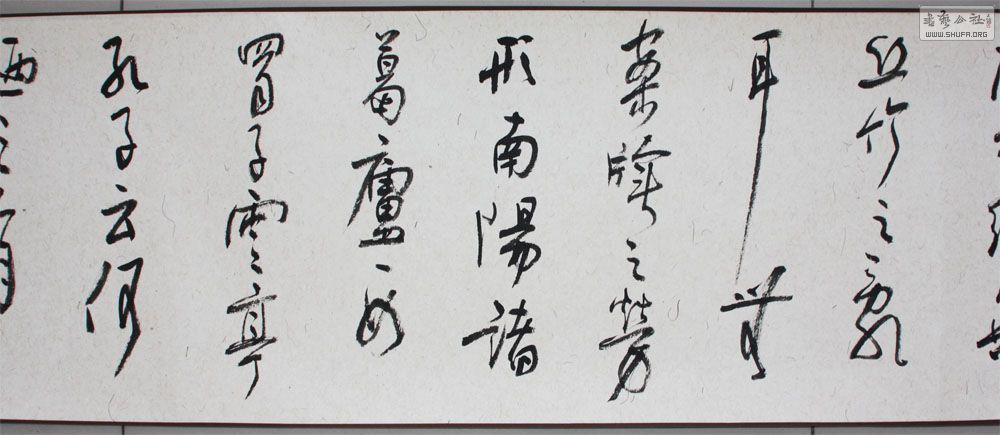 絲竹之亂
耳無
案牘之勞
形南陽諸
葛廬西
蜀子雲亭
孔子云何
陋之有
書藝公社
WWW.SHUFA.ORG